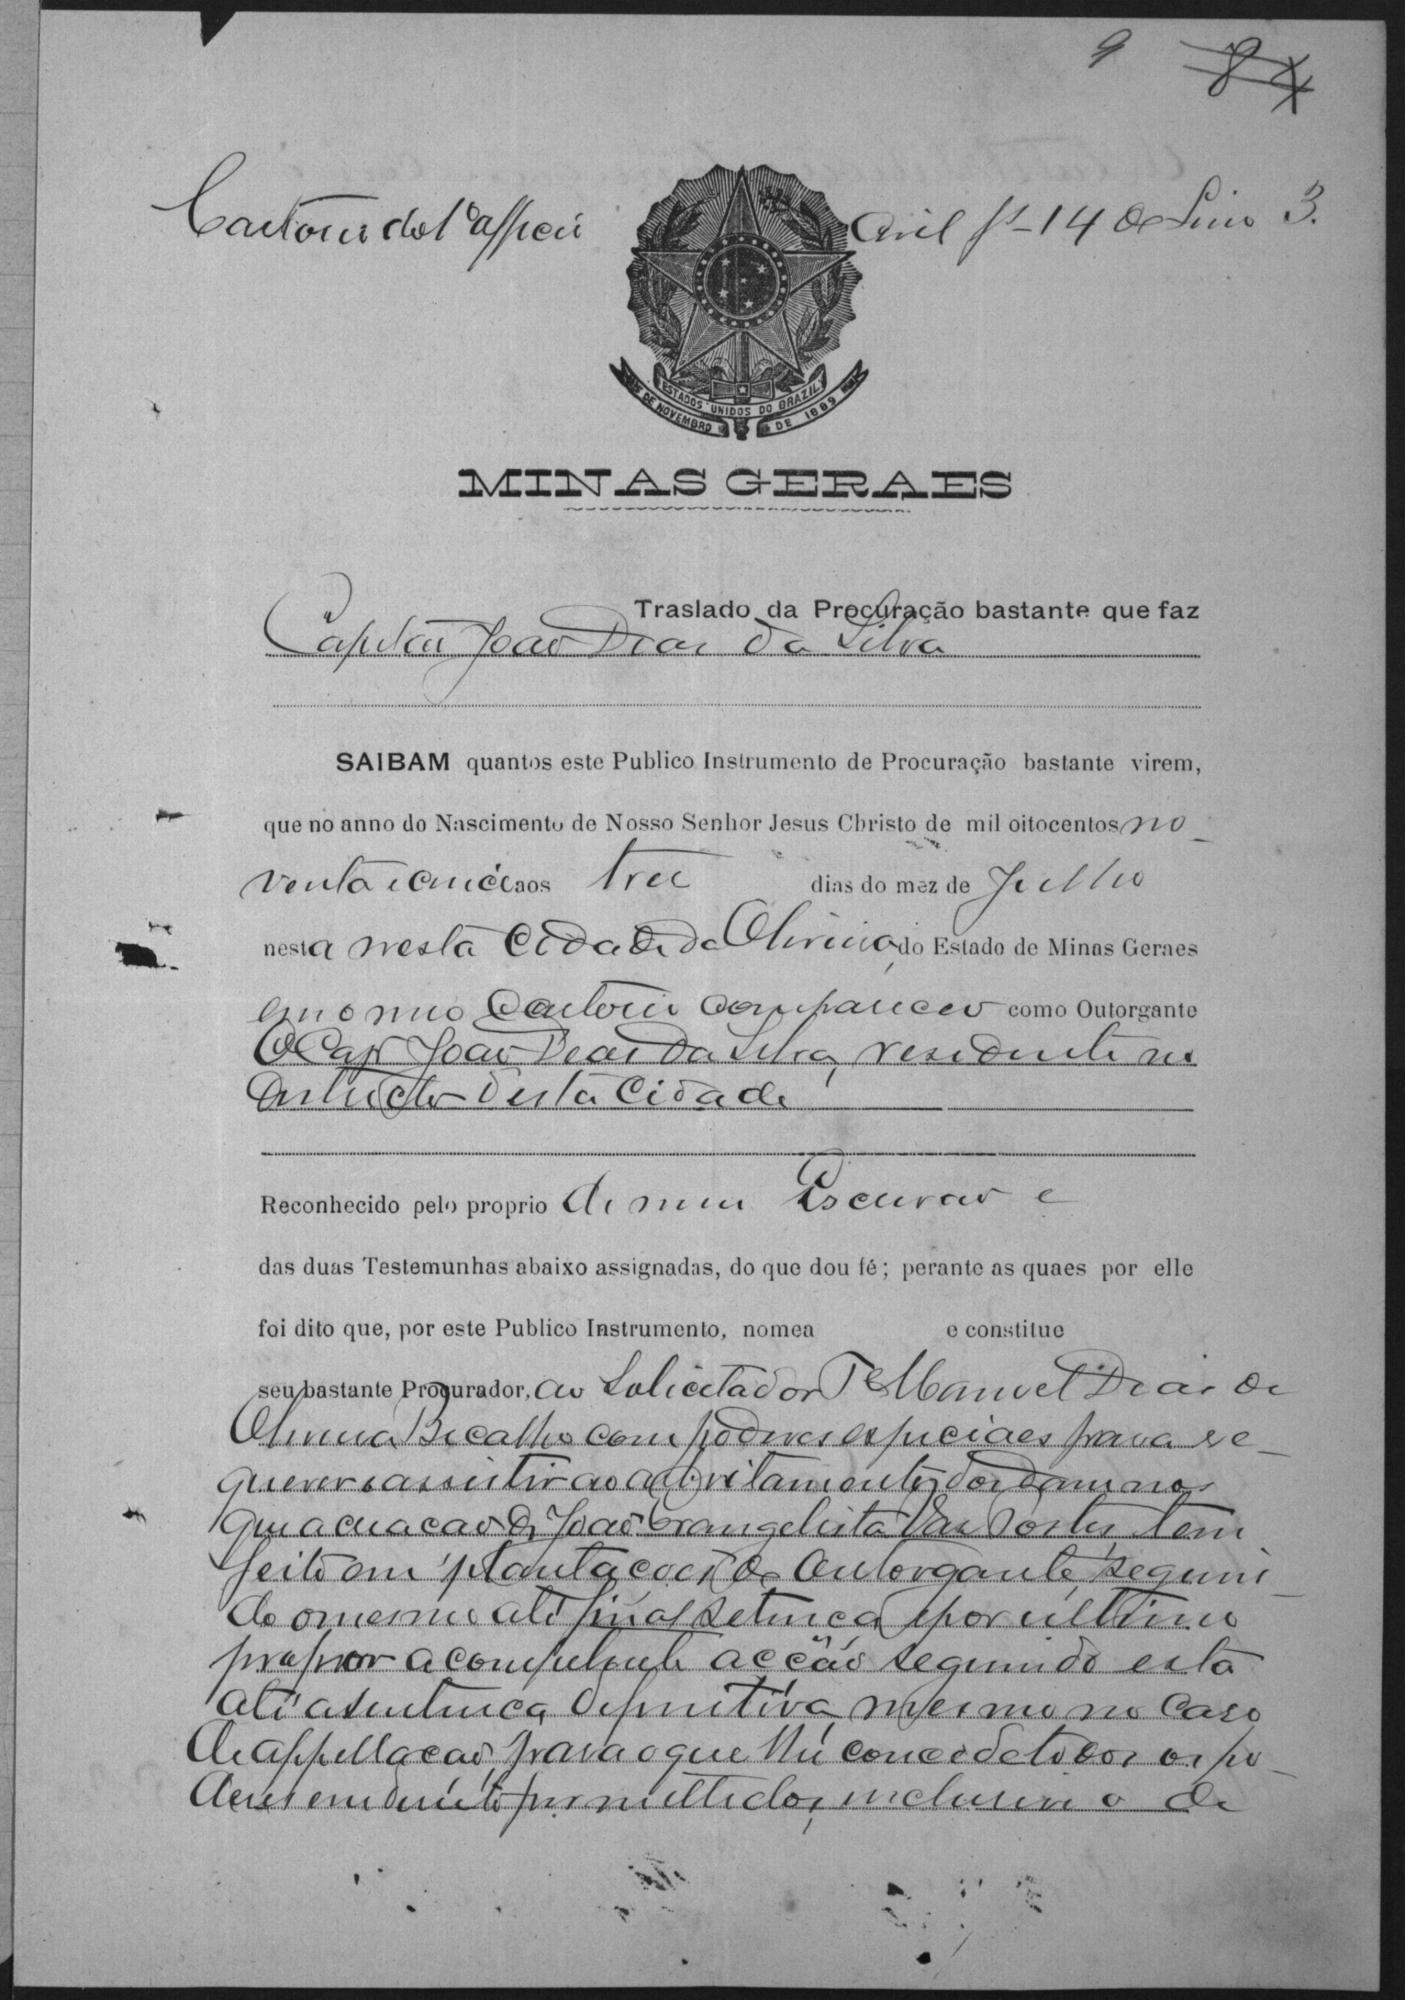 9 8
Cartorio do 1º officio Civil fs 14 do Livro 3.
ESTADOS UNIDOS DO BRAZIL
15 DE NOVEMBRO DE 1889
MINAS GERAES
Traslado da Procuração bastante que faz
Capitão João Dias da Silva
SAIBAM quantos este Publico Instrumento de Procuração bastante virem,
que no anno do Nascimento de Nosso Senhor Jesus Christo de mil oitocentos no-
venta e cinco aos tres dias do mez de Julho
nesta nesta Cidade da Oliveira, do Estado de Minas Geraes
em o meu Cartorio compareceo como Outorgante
O Capm João Dias da Silva, residente no
districto desta Cidade
Reconhecido pelo proprio de mim Escrivão e
das duas Testemunhas abaixo assignadas, do que dou fé; perante as quaes por elle
foi dito que, por este Publico Instrumento, nomea e constitue
seu bastante Procurador, ao Solicitador Te Manoel Dias de
Oliveira Bicalho com poderes especiaes para re-
querer e assistir ao arbitramento dos damnos
que a criação de João Evangelista tem
feito em plantações do Outorgante, seguin-
do o mesmo até final setença e por ultimo
propror a competente acção seguindo esta
até a sentença definitiva, mesmo no caso
de appellação, para o que lhe concede todos os po-
deres em direito permittidos, inclusive o de